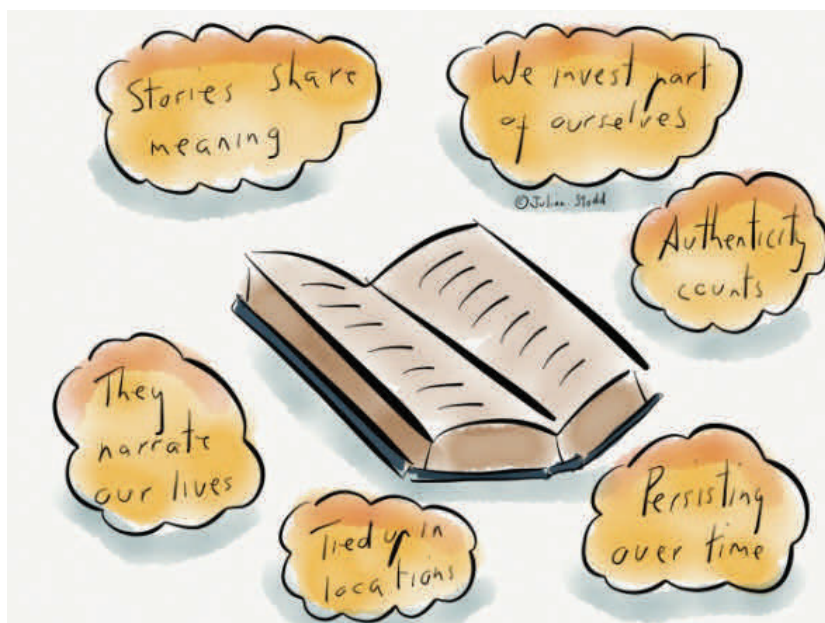 Stories share
meaning
We invest part
of ourselves
©Julian Stodd
Authenticity
counts
They
narrate
our lives
Tied up in
locations
Persisting
over time